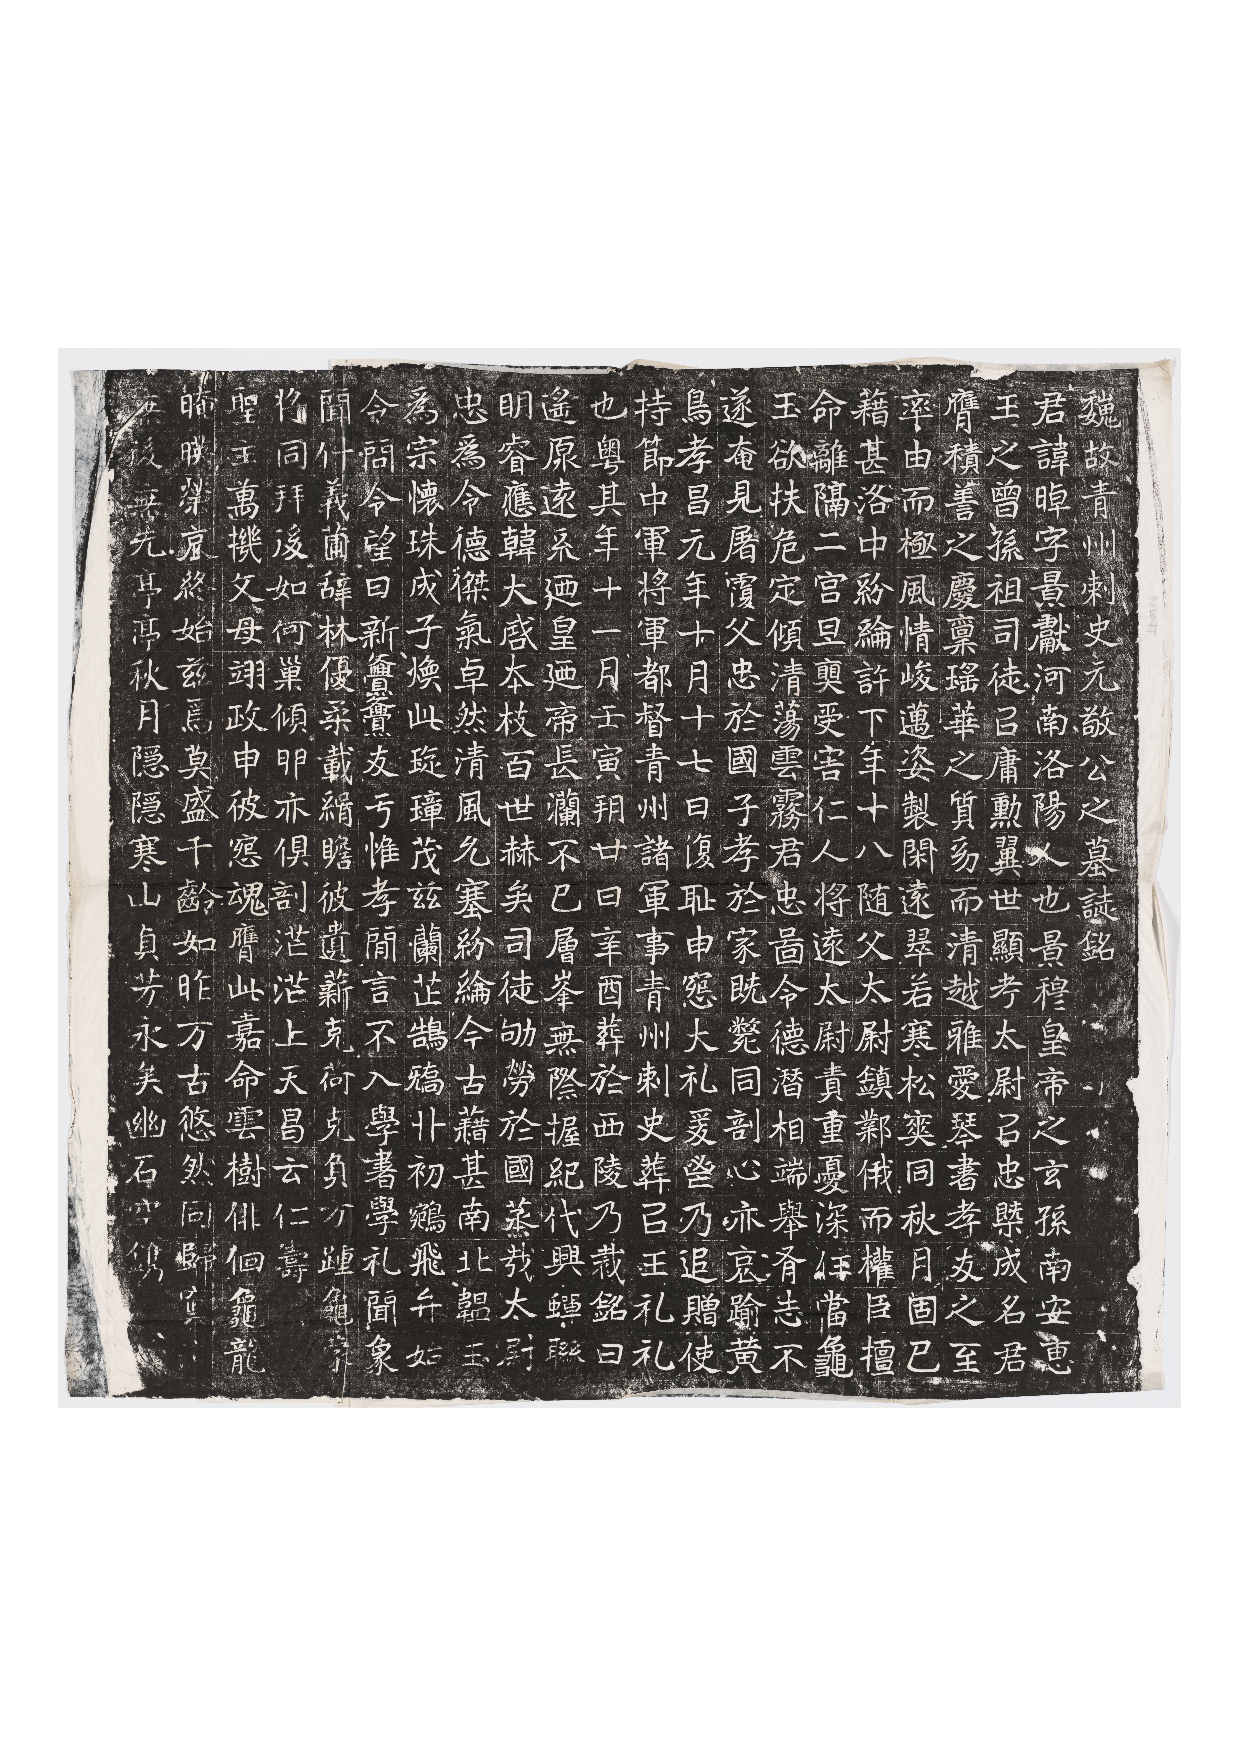 魏故青州刺史元敬公之墓誌銘
君諱晫字景獻河南洛陽人也景穆皇帝之玄孫南安惠
王之曾孫祖司徒㠯庸勳翼世顯考太尉㠯忠槩成名君
膺積善之慶稟瑤華之質剏而清越雅愛琴書孝友之至
率由而極風情峻邁姿製閑遠翠若寒松奕同秋月固已
藉甚洛中紛綸許下年十八随父太尉鎮鄴俄而權臣擅
命離隔二宫旦奭受害仁人將遠太尉責重憂深任當龜
玉欲扶危定傾清蕩雲霧君忠啚令德潛相端舉胥志不
遂奄見屠覆父忠於國子孝於家既斃同剖心亦哀踰黃
鳥孝昌元年十月十七日復耻申寃大礼爰啚乃追贈使
持節中軍將軍都督青州諸軍事青州刺史葬㠯王礼礼
也粵其年十一月壬寅朔廿日辛酉葬於西陵乃裁銘曰
遙原遠系迺皇迺帝長瀾不已層峯無際握紀代興蟬聯
明睿應韓大啓本枝百世赫矣司徒劬勞於國蒸哉太尉
忠爲令德傑氣卓然清風允塞紛綸今古藉甚南北韞玉
爲宗懷珠成子煥此琁璋茂兹蘭芷鵠鷮丱初鵷飛弁始
令問令望日新亹亹友亏惟孝閒言不入學書學礼聞象
聞什義菌辝林優柔載緝瞻彼遺薪克荷克負方踵龜蒙
將同拜後如何巢傾卵亦俱剖茫茫上天昌云仁壽
聖王萬機父母詡政申彼寃魂膺此嘉命雲樹俳佪龜龍
晻暎榮哀終始兹焉莫盛千齡如昨万古悠然同歸
無後無先亭亭秋月隱隱寒山貞芳永矣幽石